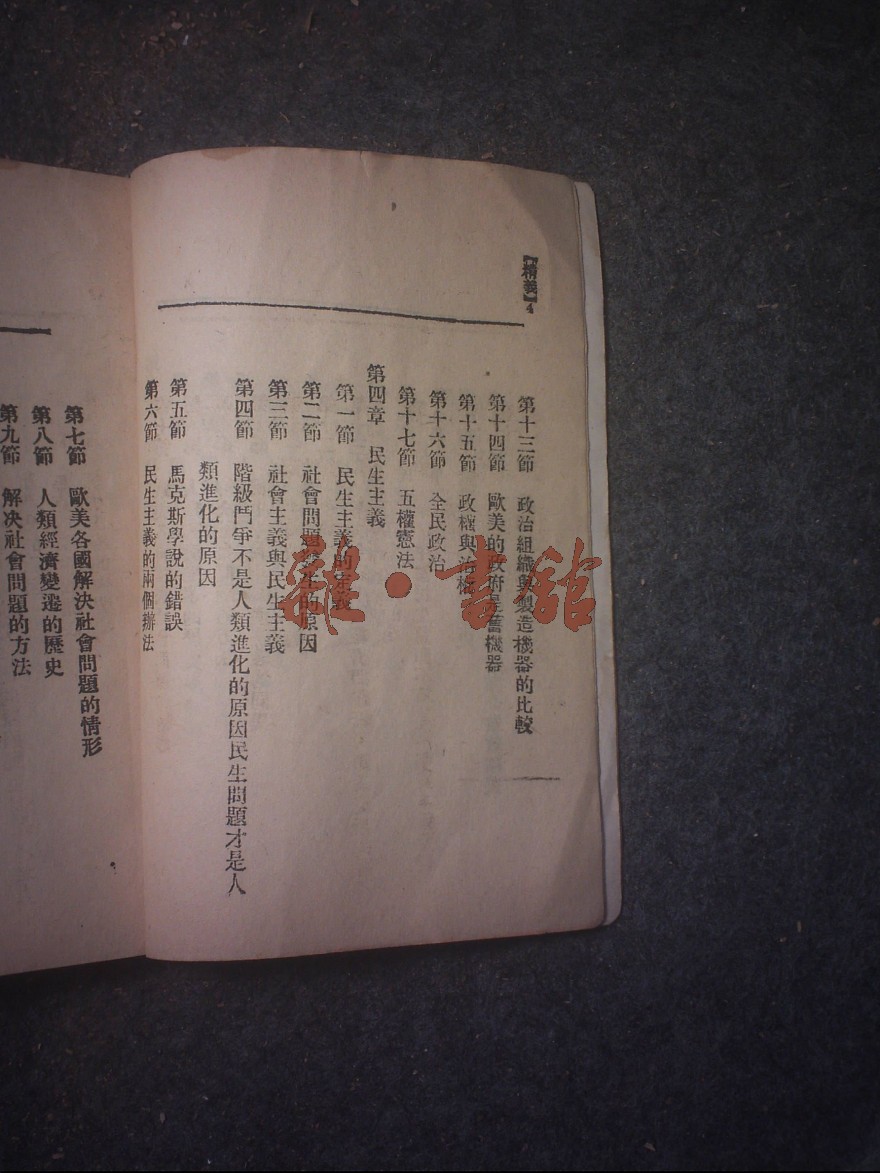 【精義】4
第十三節 政治組織與製造機器的比較
第十四節 歐美的政府是舊機器
第十五節 政權與治權
第十六節 全民政治
第十七節 五權憲法
第四章 民生主義
第一節 民生主義的定義
第二節 社會問題發生的原因
第三節 社會主義與民生主義
第四節 階級鬥爭不是人類進化的原因民生問題才是人
類進化的原因
第五節 馬克斯學說的錯誤
第六節 民生主義的兩個辦法
第七節 歐美各國解決社會問題的情形
第八節 人類經濟變遷的歷史
第九節 解決社會問題的方法
雜·書館